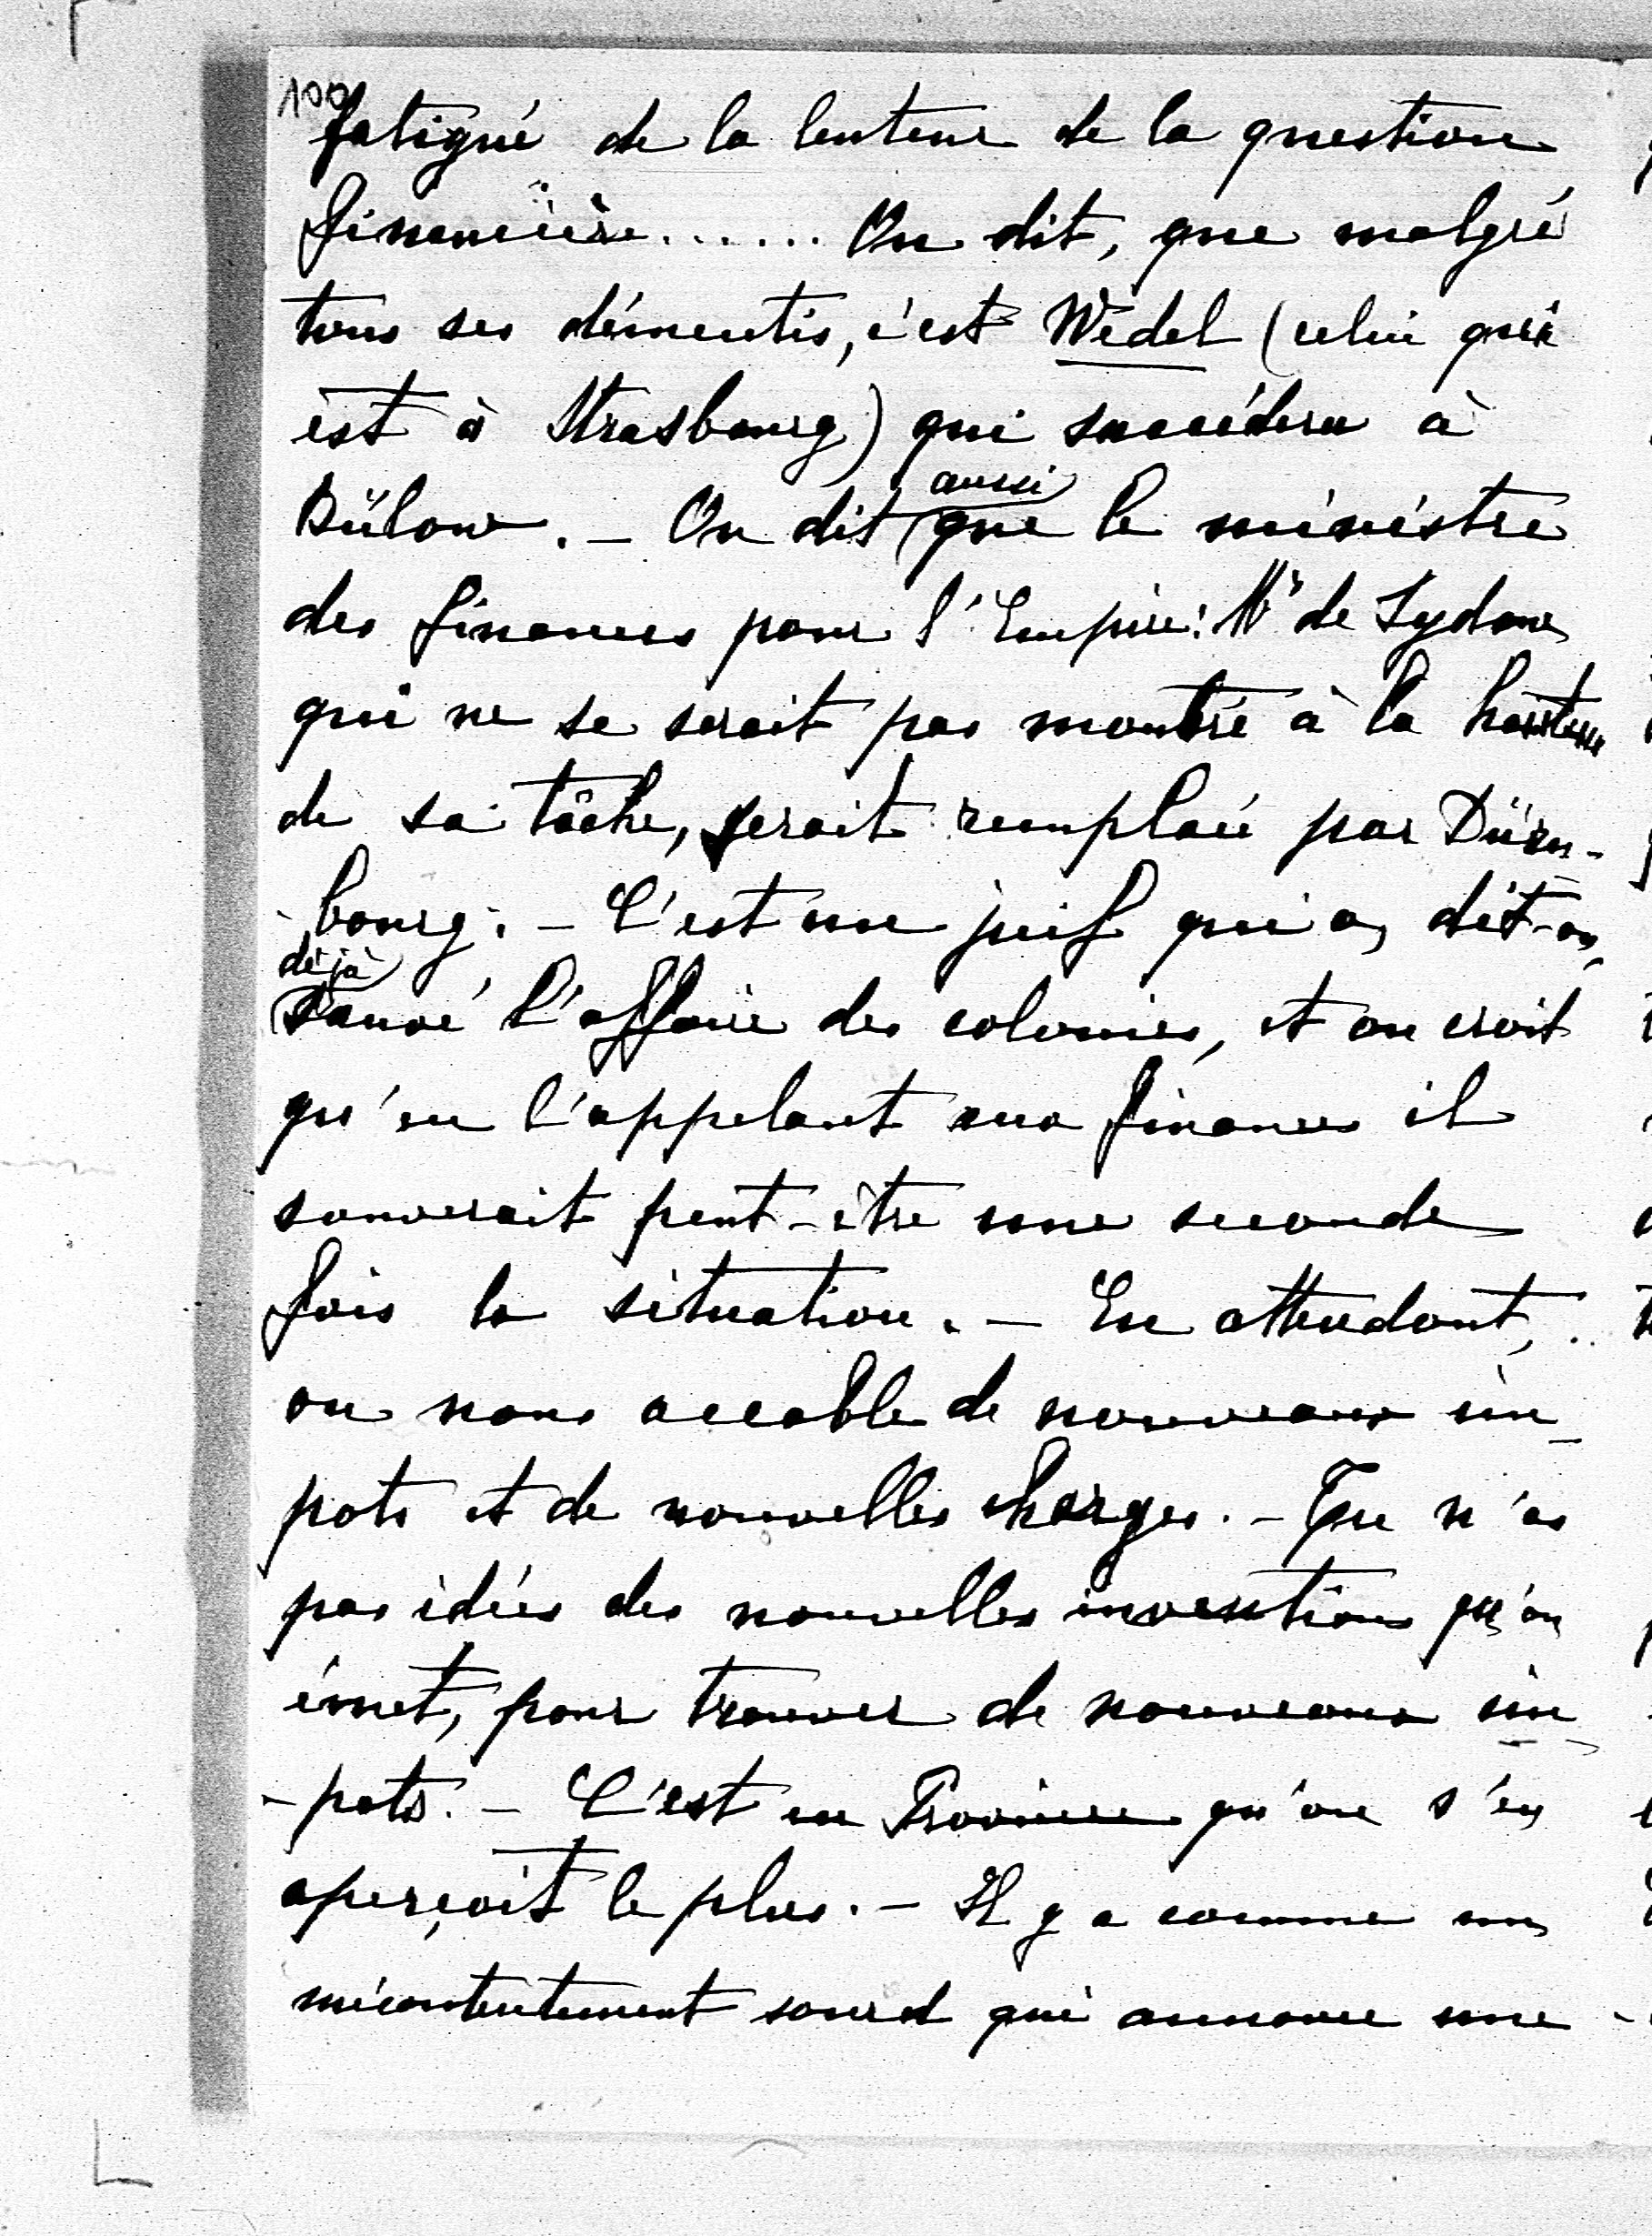 100
fatigué de la lenteur de la question
financière...... On dit, que malgré
tous ses démentis, c'est Wedel (celui qui
est à Strasbourg) qui succédera à
aussi
Bülow. - On dit que le ministre
des finances pour l'Empire: Mr de Sydow
qui ne se serait pas montré à la hauteur
de sa tâche, serait remplacé par Dürn-
-bourg. - C'est un juif qui a, dit-on,
déjà
sauvé l'affaire des colonies, et on croit
qu'en l'appelant aux finances il
sauverait peut-être une seconde
fois la situation. - En attendant,
on nous accable de nouveaux im-
pots et de nouvelles charges. - Tu n'as
pas idées des nouvelles inventions qu'on
émet, pour trouver de nouveaux im-
-pots. - C'est en Province qu'on s'en
aperçoit le plus. - Il y a comme un
mécontentement sourd qui annonce une